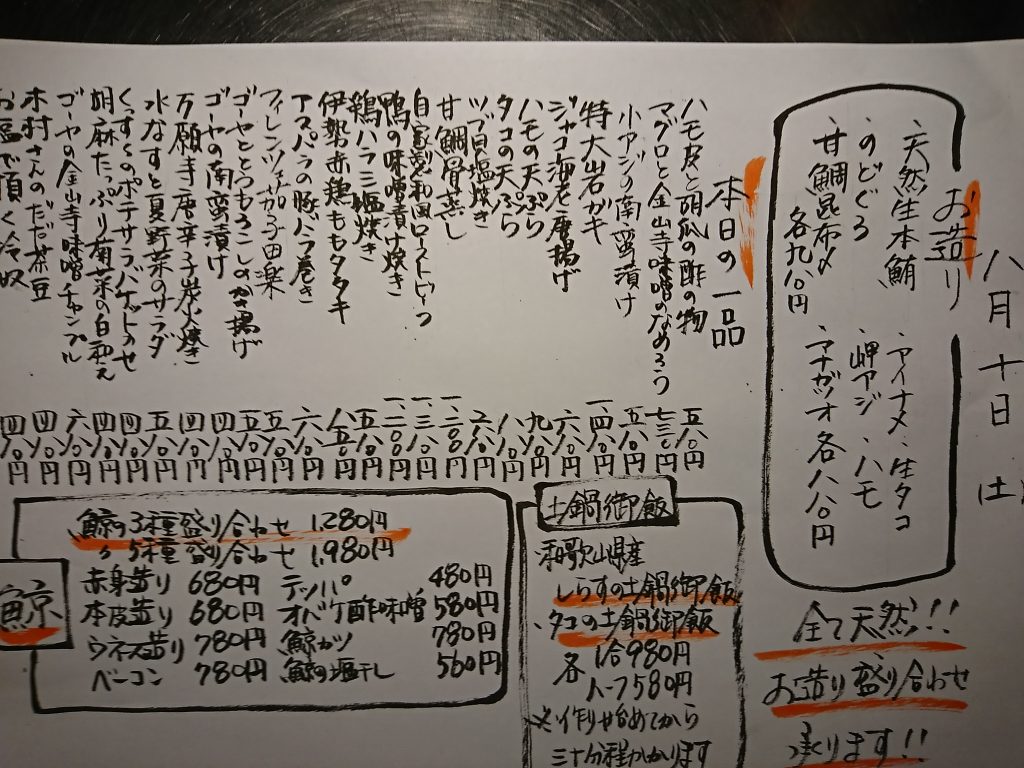 八月十日 土
お造り
・天然生本鮪
・のどぐろ
・甘鯛昆布〆
各九八〇円
・アイナメ・生タコ
・岬アジ・ハモ
・マナガツオ 各八八〇円
全て天然!!
お造り盛り合わせ
承ります!!
本日の一品
ハモ皮と胡瓜の酢の物 五八〇円
マグロと金山寺味噌のなめろう 七三〇円
小アジの南蛮漬け 五八〇円
特大岩ガキ
ジャコ海老唐揚げ 六八〇円
ハモの天ぷら 九八〇円
タコの天ぷら 八八〇円
ツブ貝塩焼き 六八〇円
甘鯛骨蒸し
自家製和風ローストビーフ
鴨の味噌漬け焼き
鶏ハラミ塩焼き 五八〇円
伊勢赤鶏ももタタキ 八五〇円
アスパラの豚バラ巻き 六八〇円
フィレンツェ茄子田楽 五八〇円
ゴーヤととうもろこしのかき揚げ 五八〇円
ゴーヤの南蛮漬け 四八〇円
万願寺唐辛子炭火焼き 四八〇円
水なすと夏野菜のサラダ 五八〇円
くんすくのポテサラバケットのせ 四八〇円
胡麻たっぷり菊菜の白和え 四八〇円
ゴーヤの金山寺味噌チャンプル 六八〇円
木村さんのだだ茶豆 四八〇円
お塩で頂く冷奴 四八〇円
土鍋御飯
・和歌山県産
しらすの土鍋御飯
・タコの土鍋御飯
各 1合980円
ハーフ580円
※作り始めてから
三十分程かかります
鯨
鯨の3種盛り合わせ 1,280円
〃5種盛り合わせ 1,980円
赤身造り 680円 テッパ 480円
本皮造り 680円 オバケ酢味噌 580円
ウネス造り 780円 鯨カツ 780円
ベーコン 780円 鯨の塩干し 560円